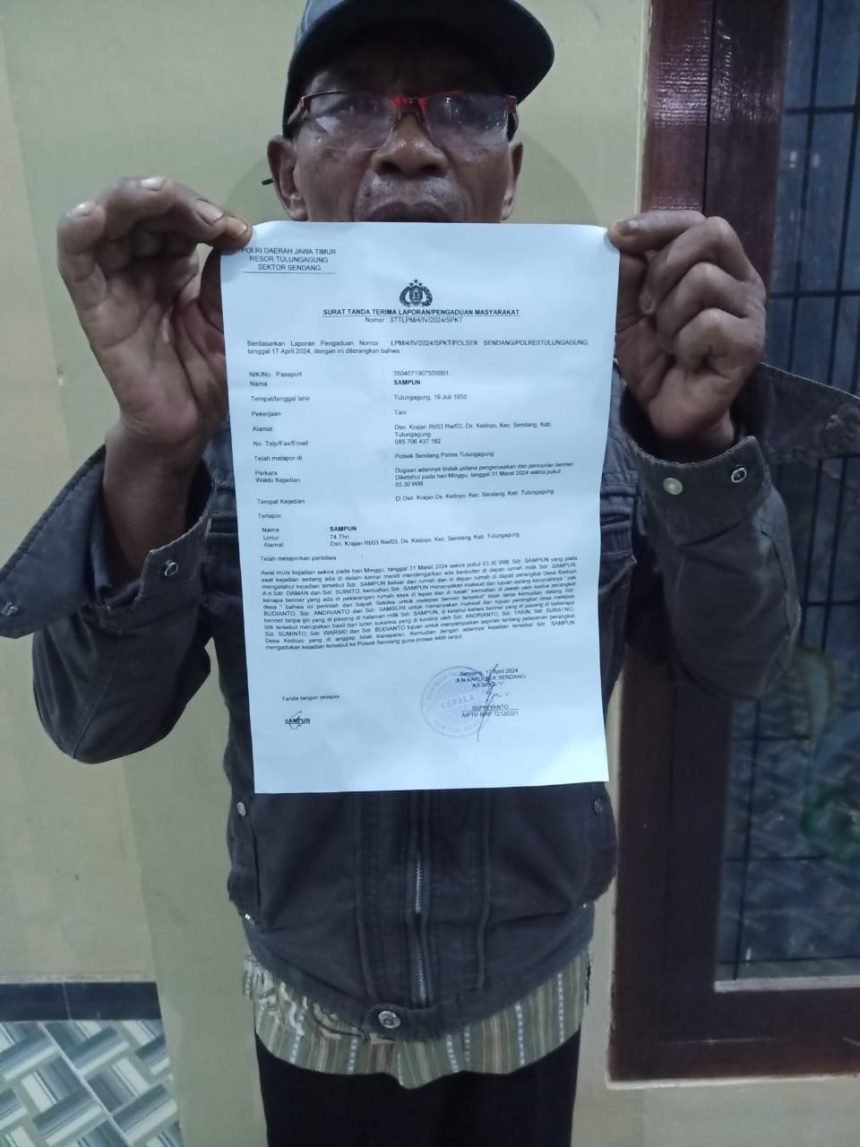 POLRI DAERAH JAWA TIMUR
RESOR TULUNGAGUNG
SEKTOR SENDANG
SURAT TANDA TERIMA LAPORAN/PENGADUAN MASYARAKAT
Nomor : STTLPM/4/IV/2024/SPKT
Berdasarkan Laporan Pengaduan Nomor LPM/4/IV/2024/SPKT/POLSEK SENDANG/POLRESTULUNGAGUNG,
tanggal 17 April 2024, dengan ini diterangkan bahwa
NIK/No. Passport : 3504071907500001
Nama : SAMPUN
Tempat/tanggal lahir : Tulungagung, 19 Juli 1950
Pekerjaan : Tani
Alamat : Dsn. Krajan Rt/03 Rw/03, Ds. Kedoyo, Kec. Sendang, Kab.
Tulungagung
No. Telp/Fax/Email : 085 706 437 182
Telah melapor di : Polsek Sendang Polres Tulungagung
Perkara : Dugaan adannya tindak pidana pengerusakan dan pencurian benner
Waktu Kejadian : Diketahui pada hari Minggu, tanggal 31 Maret 2024 sekira pukul
03.30 WIB
Tempat Kejadian : Di Dsn. Krajan Ds. Kedoyo, Kec. Sendang, Kab. Tulungagung
Terlapor
Nama : SAMPUN
Umur : 74 Thn
Alamat : Dsn. Krajan Rt/03 Rw/03, Ds. Kedoyo, Kec. Sendang, Kab. Tulungagung
Telah melaporkan peristiwa :
Awal mula kejadian sekira pada hari Minggu, tanggal 31 Maret 2024 sekira pukul 03.30 WIB, Sdr. SAMPUN yang pada
saat kejadian sedang ada di dalam kamar mandi mendengarkan ada keributan di depan rumah milik Sdr. SAMPUN,
mengetahui kejadian tersebut Sdr. SAMPUN keluar dari rumah dan di depan rumah di dapati perangkat Desa Kedoyo
A.n Sdr. DAMAN dan Sdr. SUWITO, kemudian Sdr. SAMPUN menanyakan maksud dan tujuan datang kerumahnya
kenapa benner yang ada di pekarangan rumah saya di lepas dan di rusak" kemudian di jawab oleh kedua perangkat
desa " bahwa ini perintah dari bapak Sekdes untuk melepas benner tersebut" tidak lama kemudian datang Sdr.
BUDIANTO, Sdr. ANDRIANTO dan Sdr. SAMSURI untuk menanyakan maksud dan tujuan perangkat desa melepas
benner tanpa ijin yang di pasang di halaman milik Sdr. SAMPUN, di ketahui bahwa benner yang di pasang di beberapa
titik tersebut merupakan hasil dari iuran sukarela yang di kordinir oleh Sdr. ANDRIANTO, Sdr. YAKIN, Sdr. SURATNO,
Sdr. SUMINTO, Sdr. WARSID dan Sdr. BUDIANTO tujuan untuk menyampaikan aspirasi tentang pelayanan perangkat
Desa Kedoyo yang di anggap tidak transparan. Kemudian dengan adannya kejadian tersebut Sdr. SAMPUN
mengadukan kejadian tersebut ke Polsek Sendang guna proses lebih lanjut.
Sendang, 17 April 2024
A.N KAPOLSEK SENDANG
Tanda tangan pelapor
KEPALA
SAMPUN
SUPRIYANTO
AIPTU NRP 72120321